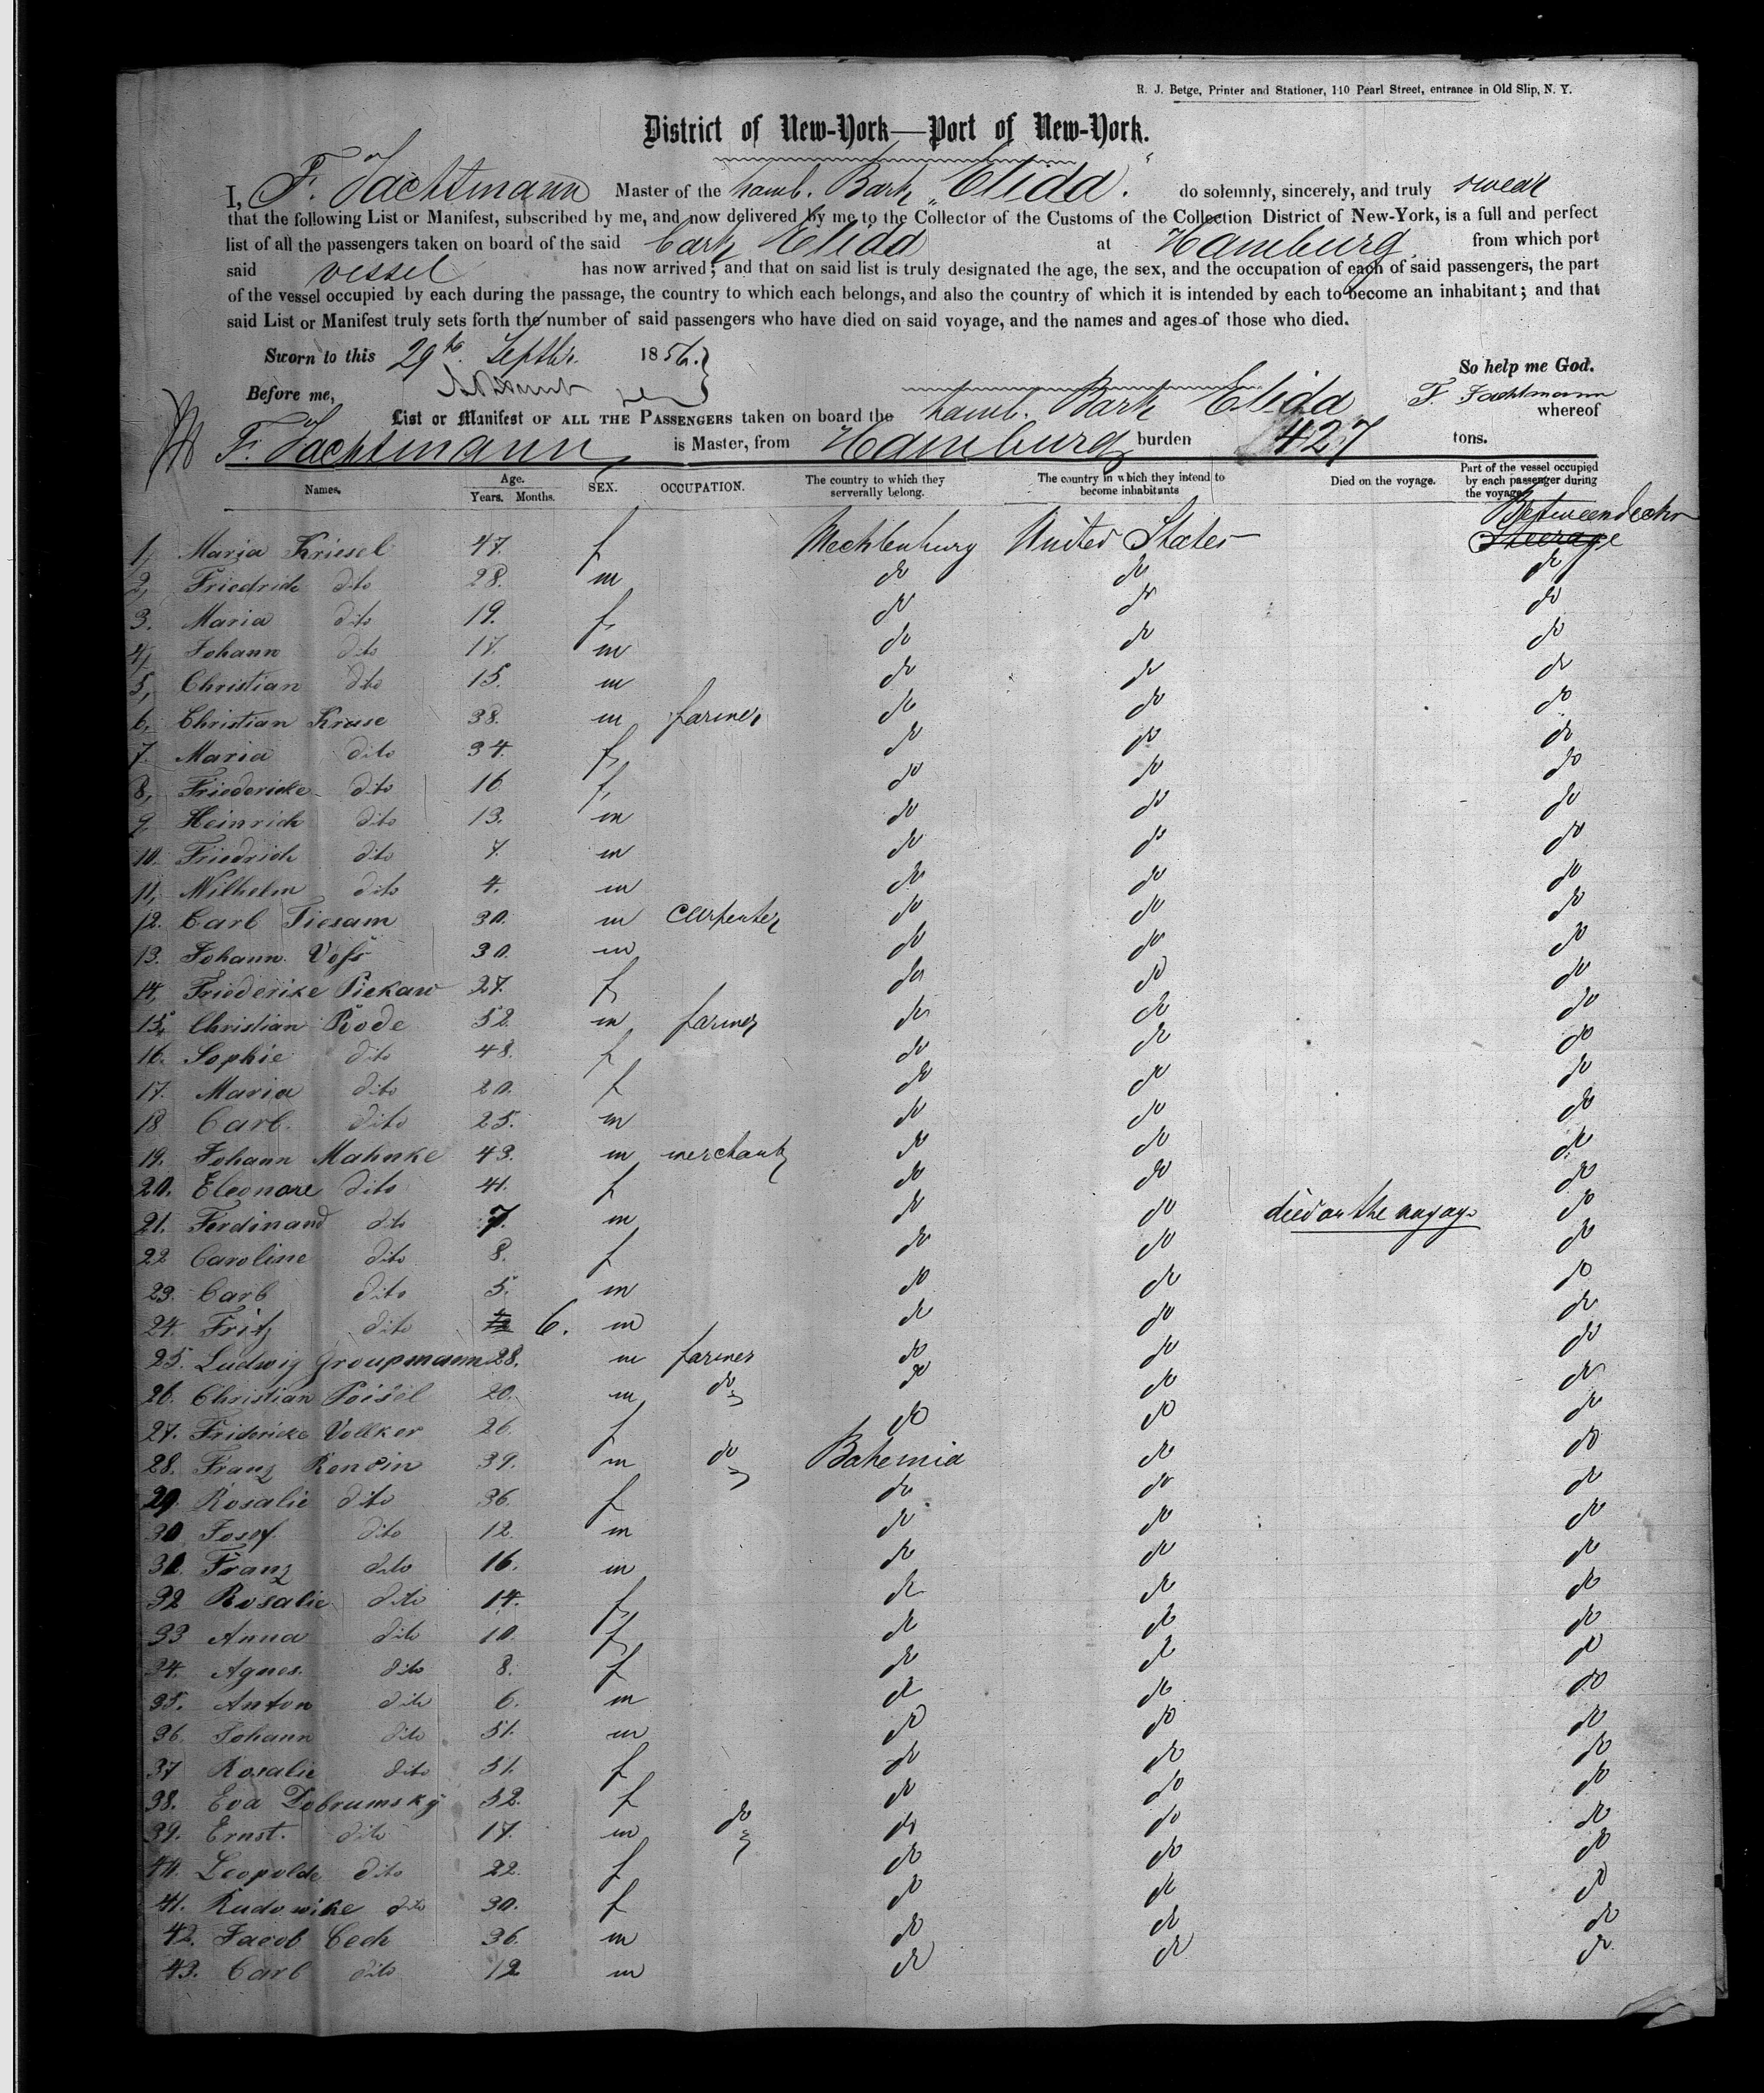 R. J. Betge, Printer and Stationer, 110 Pearl Street, entrance in Old Slip, N. Y.
District of New-York—Port of New-York.
I, F. Jachtmann Master of the hamb. Bark „Elida" do solemnly, sincerely, and truly swear
that the following List or Manifest, subscribed by me, and now delivered by me to the Collector of the Customs of the Collection District of New-York, is a full and perfect
list of all the passengers taken on board of the said bark Elida at Hamburg from which port
said vessel has now arrived; and that on said list is truly designated the age, the sex, and the occupation of each of said passengers, the part
of the vessel occupied by each during the passage, the country to which each belongs, and also the country of which it is intended by each to become an inhabitant; and that
said List or Manifest truly sets forth the number of said passengers who have died on said voyage, and the names and ages of those who died.
Sworn to this 29th Septbr. 1856.
So help me God.
Before me,
F. Jachtmann
List or Manifest OF ALL THE PASSENGERS taken on board the hamb. Bark Elida whereof
F. Jachtmann is Master, from Hamburg burden 427 tons.
Names. Age. Years. Months. SEX. OCCUPATION. The country to which they serverally belong. The country in which they intend to become inhabitants Died on the voyage. Part of the vessel occupied by each passenger during the voyage
Betweendeck
1, Maria Kriesel 47. f Mecklenburg United States Steerage
2, Friedrich dito 28. m do do do
3. Maria dito 19. f do do do
4, Johann dito 17. m do do do
5, Christian dito 15. m do do do
6, Christian Kruse 38. m farmer do do do
7. Maria dito 34. f do do do
8, Friedericke dito 16 f do do do
9, Heinrich dito 13. m do do do
10. Friedrich dito 7. m do do do
11, Wilhelm dito 4. m do do do
12. Carl Tiesam 30. m carpenter do do do
13. Johann Voss 30. m do do do
14, Friederike Piekaw 27. f do do do
15, Christian Rode 52. m farmer do do do
16. Sophie dito 48. f do do do
17. Maria dito 20. f do do do
18 Carl dito 25. m do do do
19. Johann Mahnke 43. m merchant do do do
20. Eleonore dito 41. f do do do
21. Ferdinand dito 7. m do do died on the voyage do
22 Caroline dito 8. f do do do
23. Carl dito 5. m do do do
24. Fritz dito 6. m do do do
25. Ludwig Groupmann 28. m farmer do do do
26. Christian Poisel 20. m do do do do
27. Fridericke Vollker 26. f do do do
28. Franz Rensin 39. m do Bohemia do do
29. Rosalie dito 36. f do do do
30 Josef dito 12. m do do do
31. Franz dito 16. m do do do
32 Rosalie dito 14. f do do do
33 Anna dito 10. f do do do
34. Agnes. dito 8. f do do do
35. Anton dito 6. m do do do
36. Johann dito 51. m do do do
37 Rosalie dito 51. f do do do
38. Eva Dobrumsky 52. f do do do
39. Ernst. dito 17. m do do do do
40. Leopolde dito 22. f do do do
41. Ludowike dito 30. f do do do
42. Jacob Cech 36. m do do do
43. Carl dito 12 m do do do